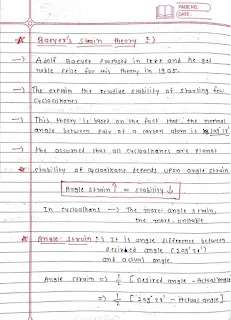 PAGE NO.
DATE:
* Baeyer's strain theory :)
→ Adolf Baeyer proposed in 1885 and he get
noble prize for this theory in 1905.
→ The explain the relative stability of starting few
cycloalkanes
→ This theory is based on the fact that the normal
angle between pair of a carbon atom is 109°28'
→ He assumed that all cycloalkanes are planar
* stability of cycloalkane depends upon angle strain
Angle strain ↑ = stability ↓
In cycloalkans → The more angle strain,
the more unstable
* Angle strain :) It is angle difference between
desired angle (109°28')
and actual angle.
Angle strain => 1/2 [Desired angle - Actual angle]
=> 1/2 [109°28' - Actual angle]